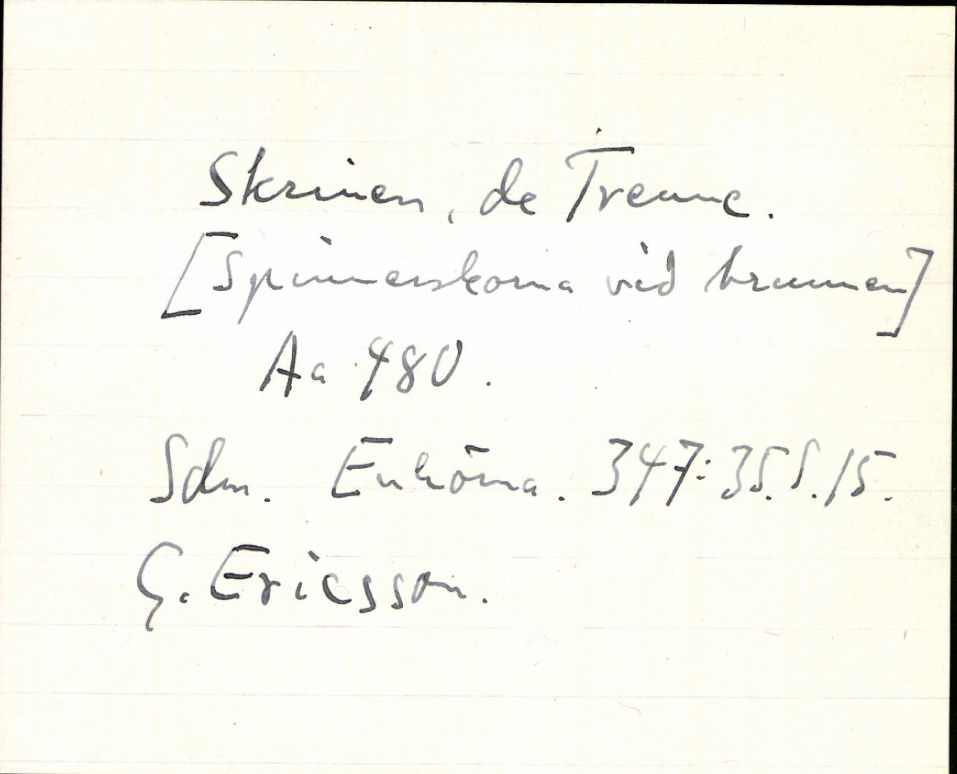 Skrinen, de Trenne.
[Spinnerskorna vid brunnen]
Aa 480.
Sdm. Enhörna. 347:35. S. 15.
G. Ericsson.